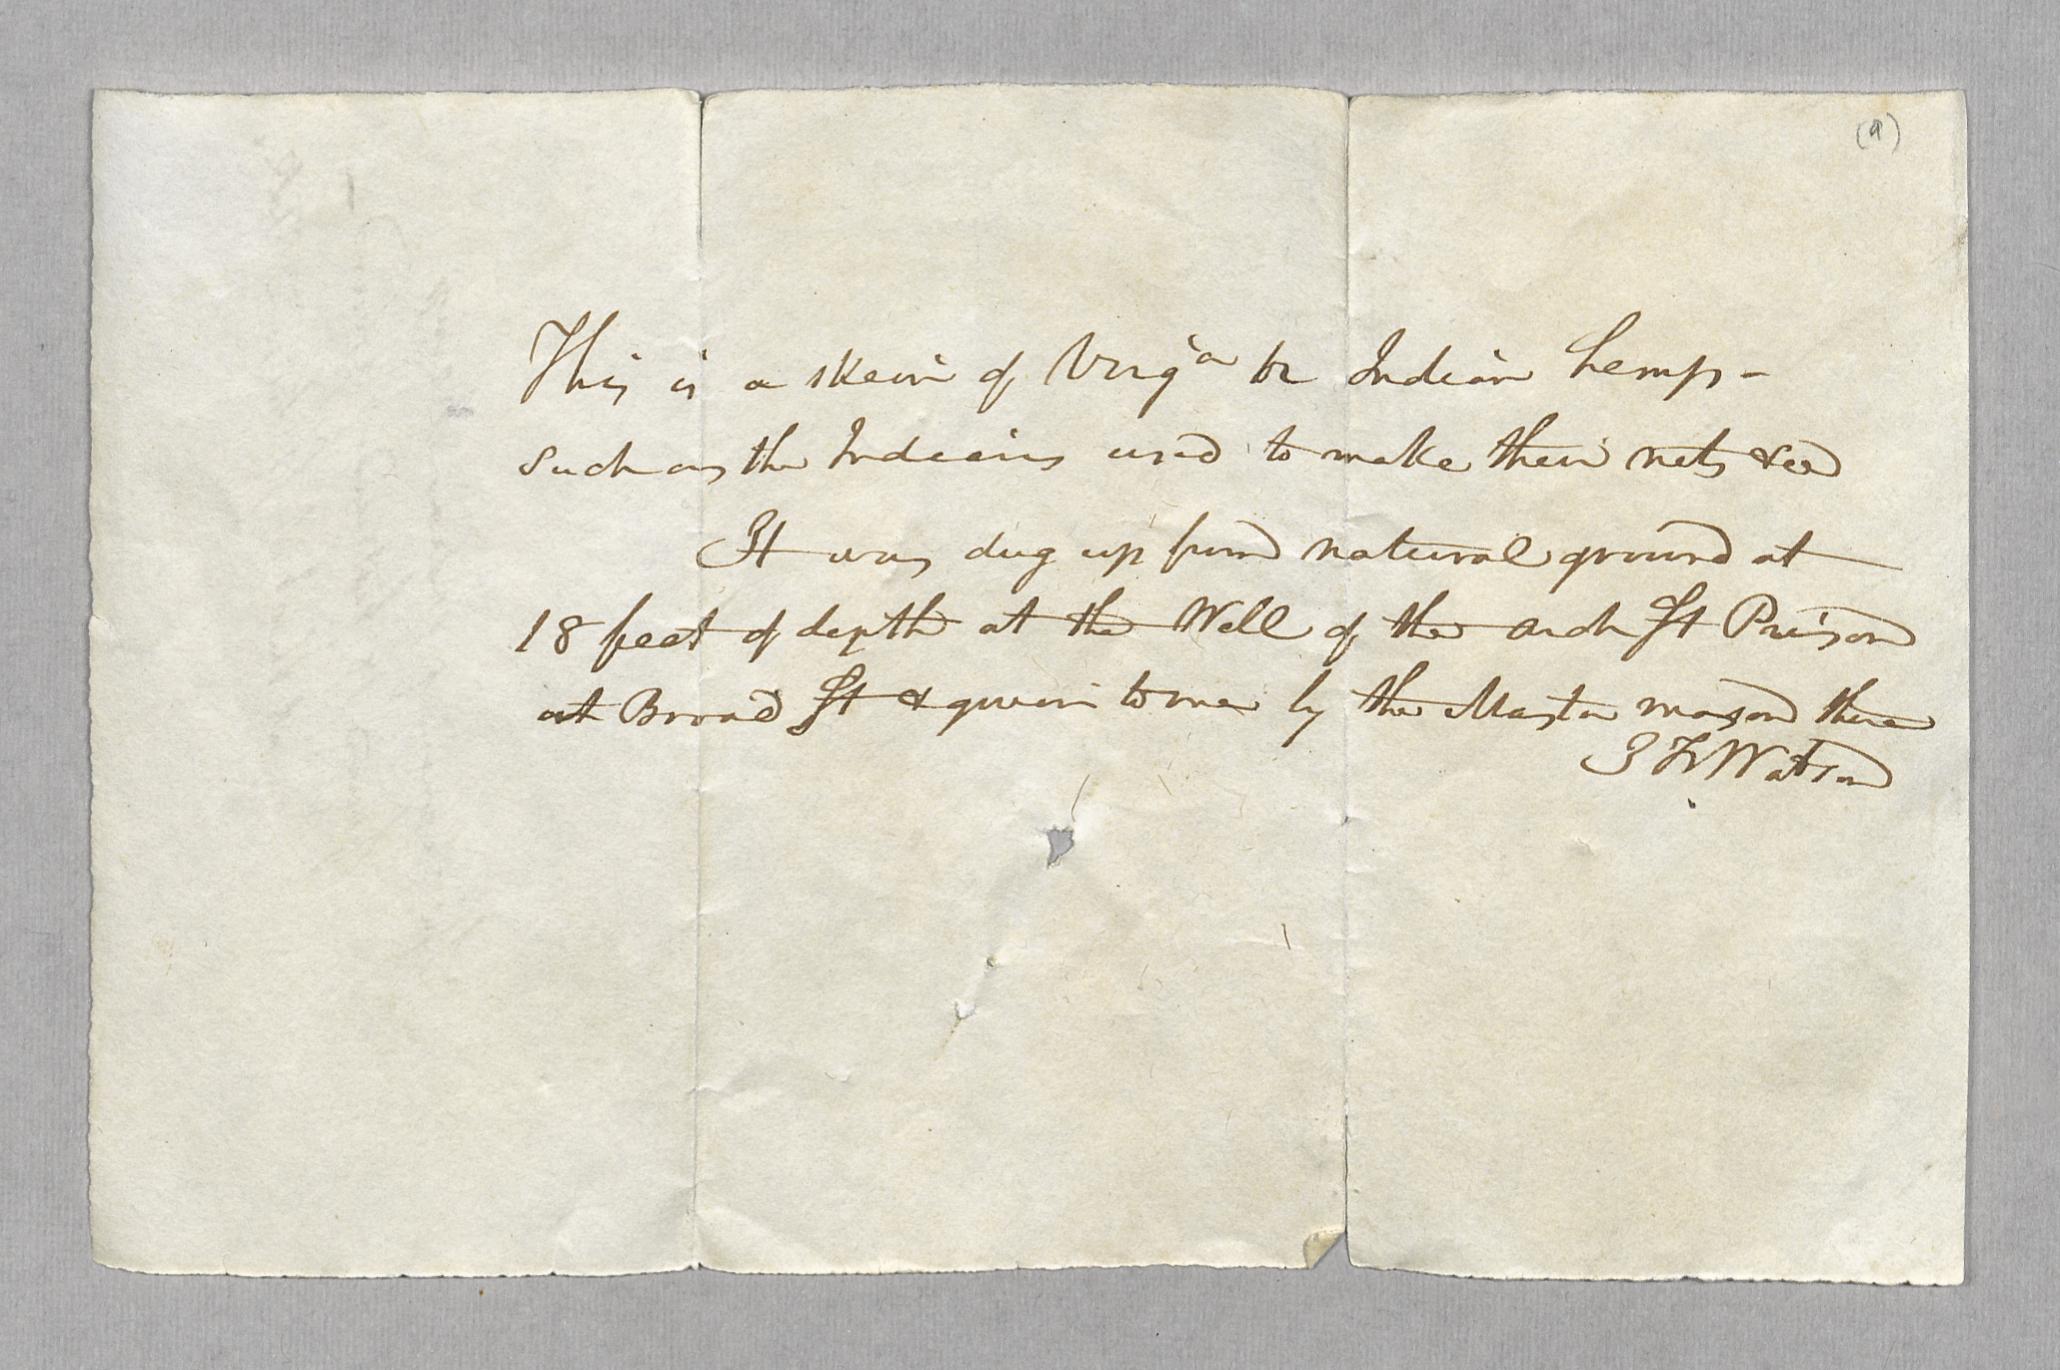 (9)
This is a skein of Virgᵃ or Indian hemp -
such as the Indians used to make their nets &ca
It was dug up from natural ground at
18 feet of depth at the Well of the Arch St Prison
at Broad St & given to me by the Master mason there
J F Watson